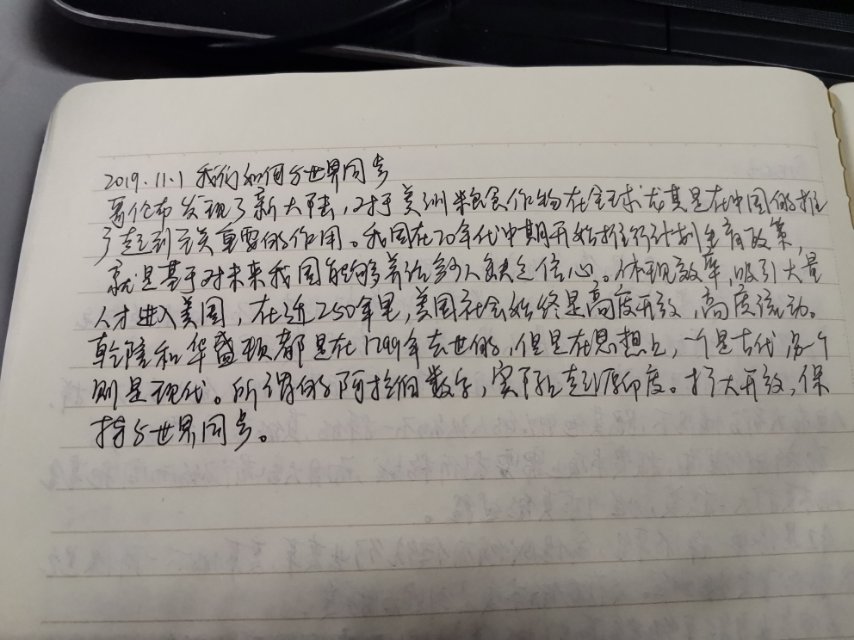 2019.11.1 我们如何与世界同步
哥伦布发现了新大陆,对于美洲粮食作物在全球尤其是在中国的推
广起到至关重要的作用。我国在70年代中期开始推行计划生育政策,
就是基于对未来我国能够养活多少人缺乏信心。体现效率,吸引大量
人才进入美国,在近250年里,美国社会始终是高度开放,高度流动。
乾隆和华盛顿都是在1799年去世的,但是在思想上,一个是古代,另一个
则是现代。所谓的阿拉伯数字,实际上起源印度。扩大开放,保
持与世界同步。